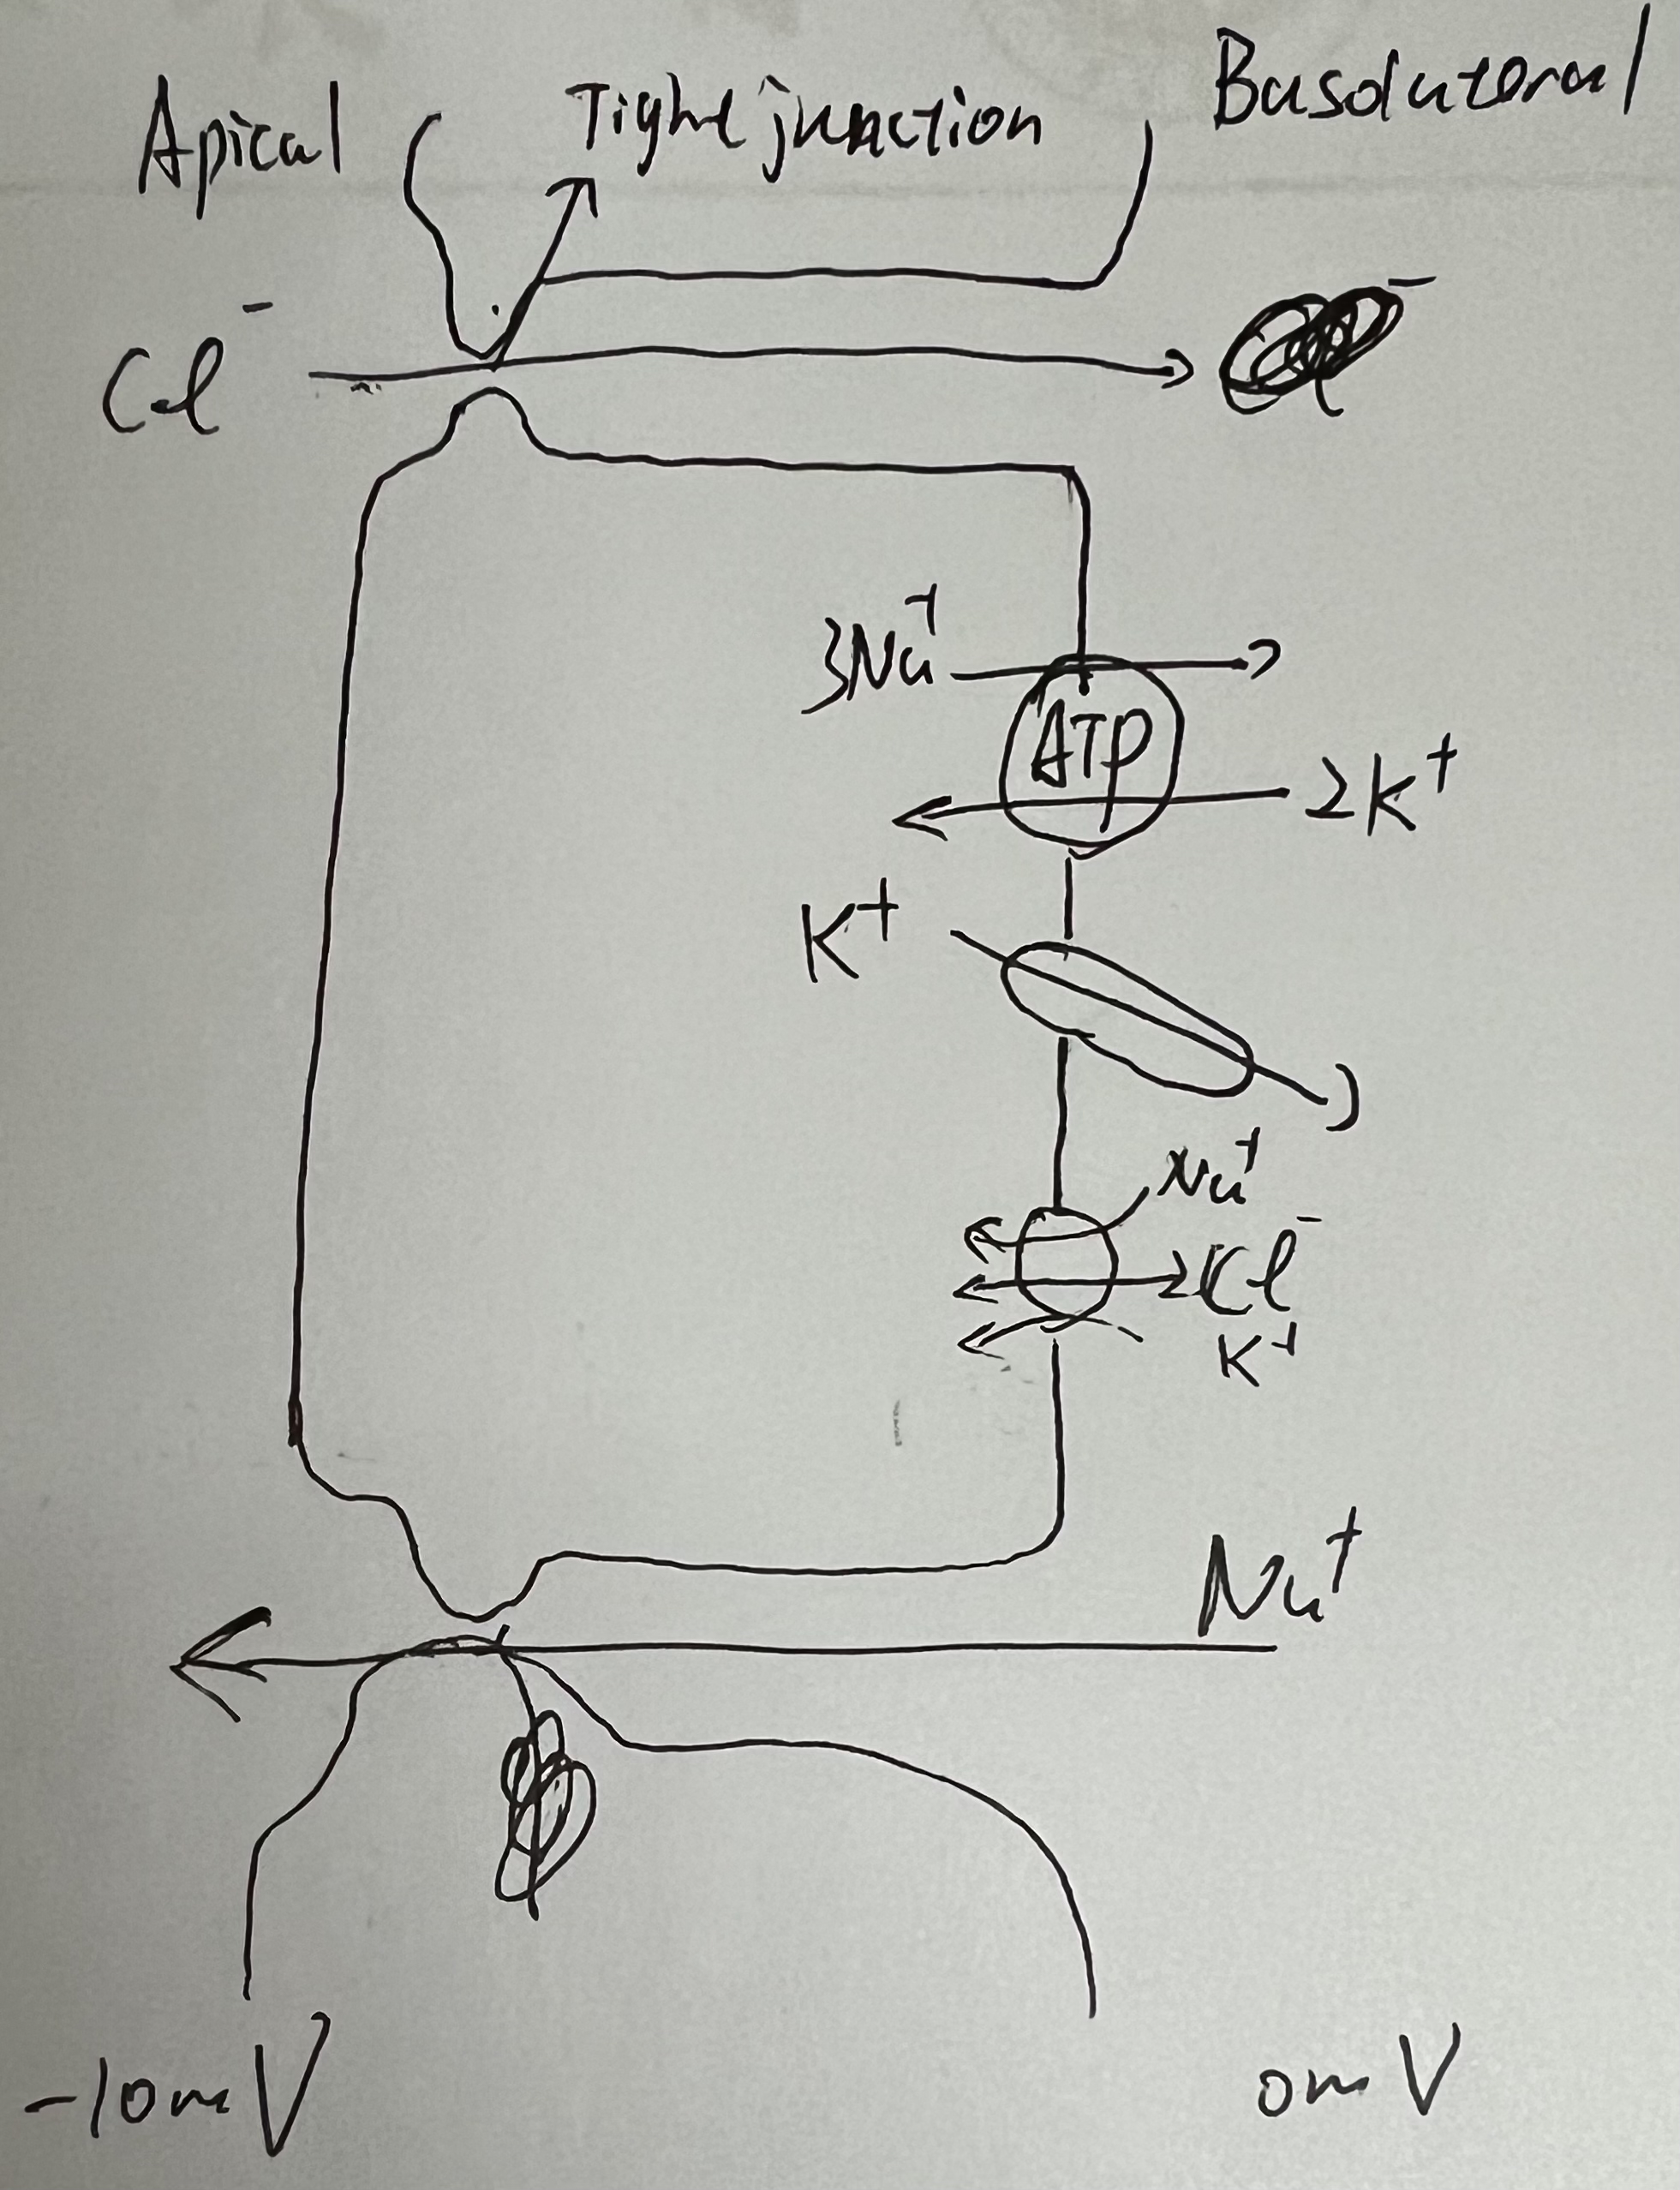 Apical
Tight junction
Basolateral
Cl⁻
3Na⁺
ATP
2K⁺
K⁺
Na⁺
2Cl⁻
K⁺
Na⁺
-10mV
0mV